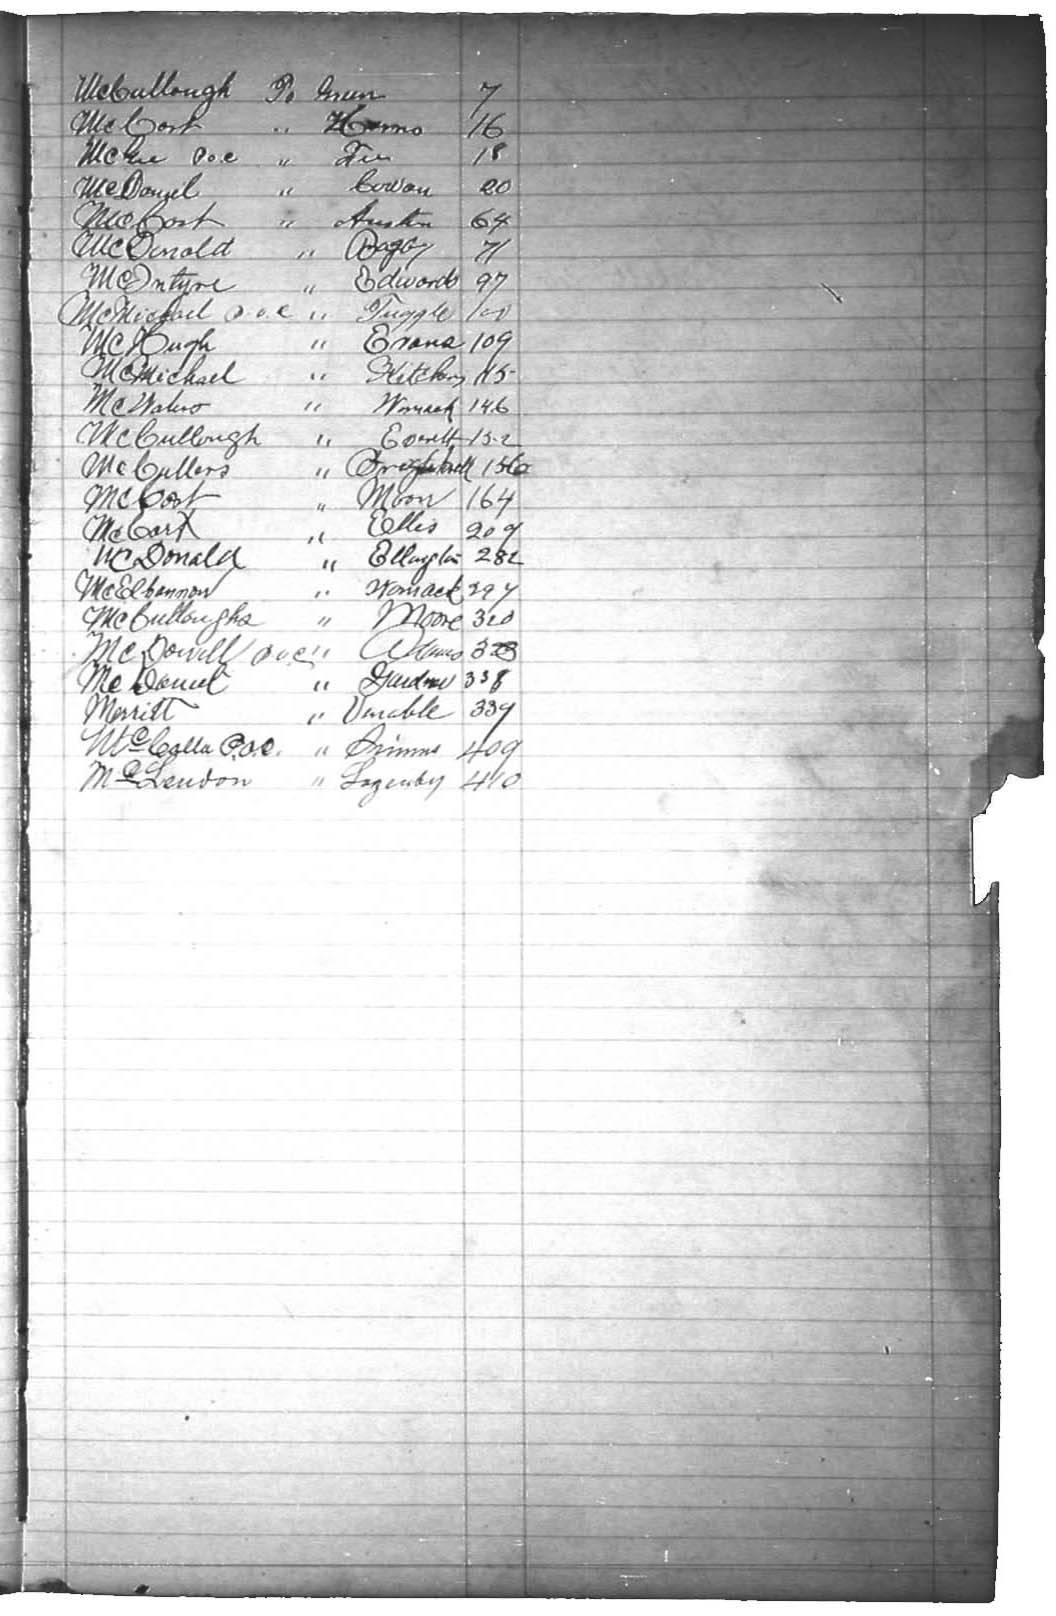 McCullough To Green 7
McCort " Harris 16
McKee P.O.C " Fee 18
McDaniel " Cowan 20
McCort " Austin 64
McDonald " Bagby 71
McIntyre " Edwards 97
McMichael P.O.C " Tuggle
McHugh " Evans 109
McMichael " Kitchens 115
McWaters " Womack 146
McCullough " Everett 152
McCullers " 156
McCort " Moon 164
McCart " Ellis 209
McDonald " Ellington 282
McElhannon " Womack 297
McCulloughs " Moore 320
McDowell P.O.C " Adams 323
McDaniel " Gardner 338
Merritt " Venable 339
McCalla P.O.C. " Trimms 409
McLendon " Lazenby 410